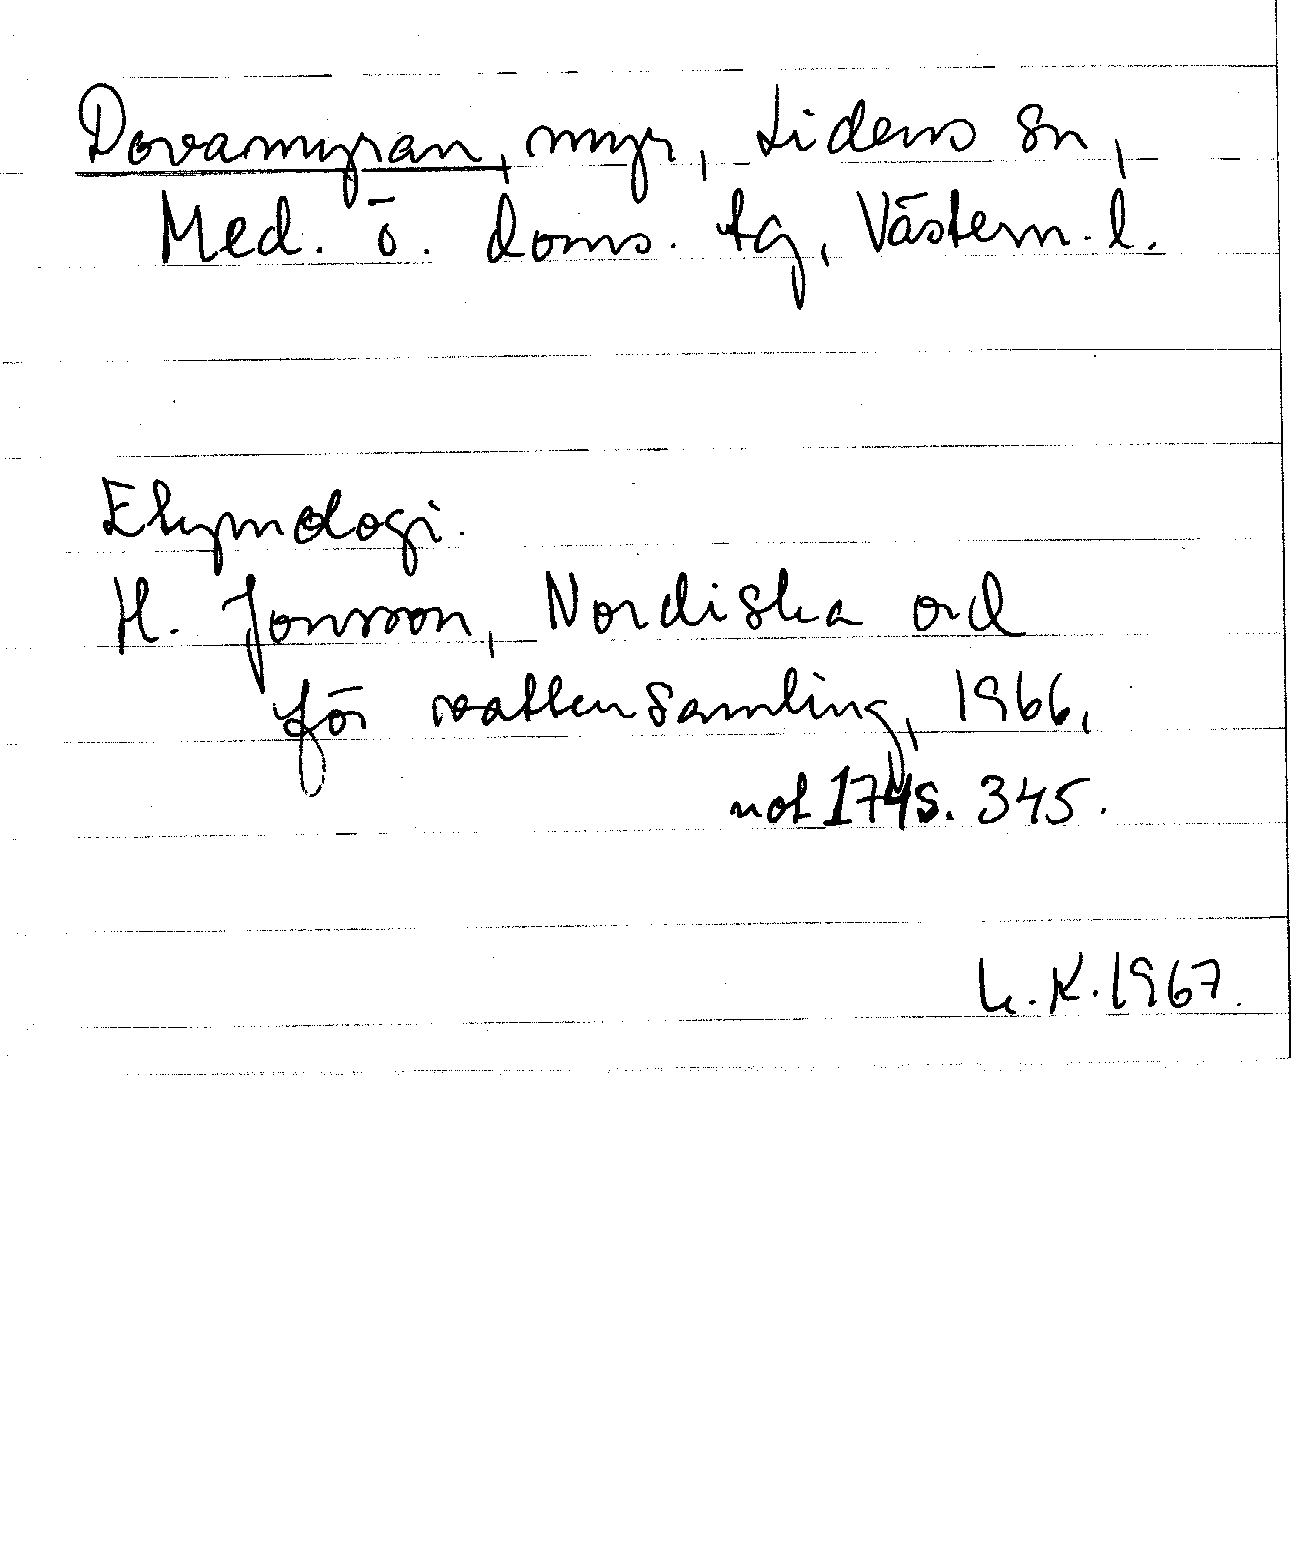 Dovamyran, myr, Lidens sn,
Med. ö. doms. tg, Västern. l.
Etymologi.
H. Jonsson, Nordiska ord
för vattensamling, 1966,
not 174 s. 345.
L. K. 1967.